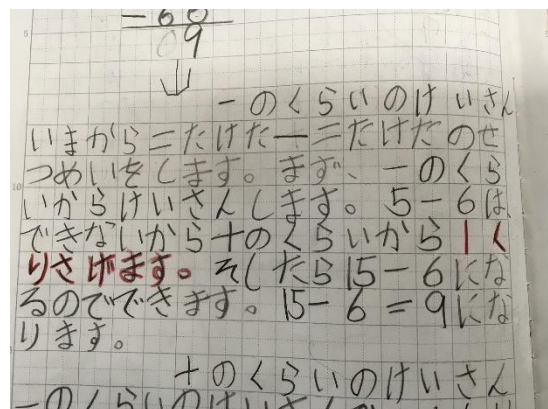 －60
09
一のくらいのけいさん
いまから二たけた一二たけたのせ
つめいをします。まず、一のくら
いからけいさんします。5－6は、
できないから十のくらいから1く
りさげます。そしたら15－6にな
るのでできます。15－6＝9にな
ります。
十のくらいのけいさん
一のくらいのけいさんが